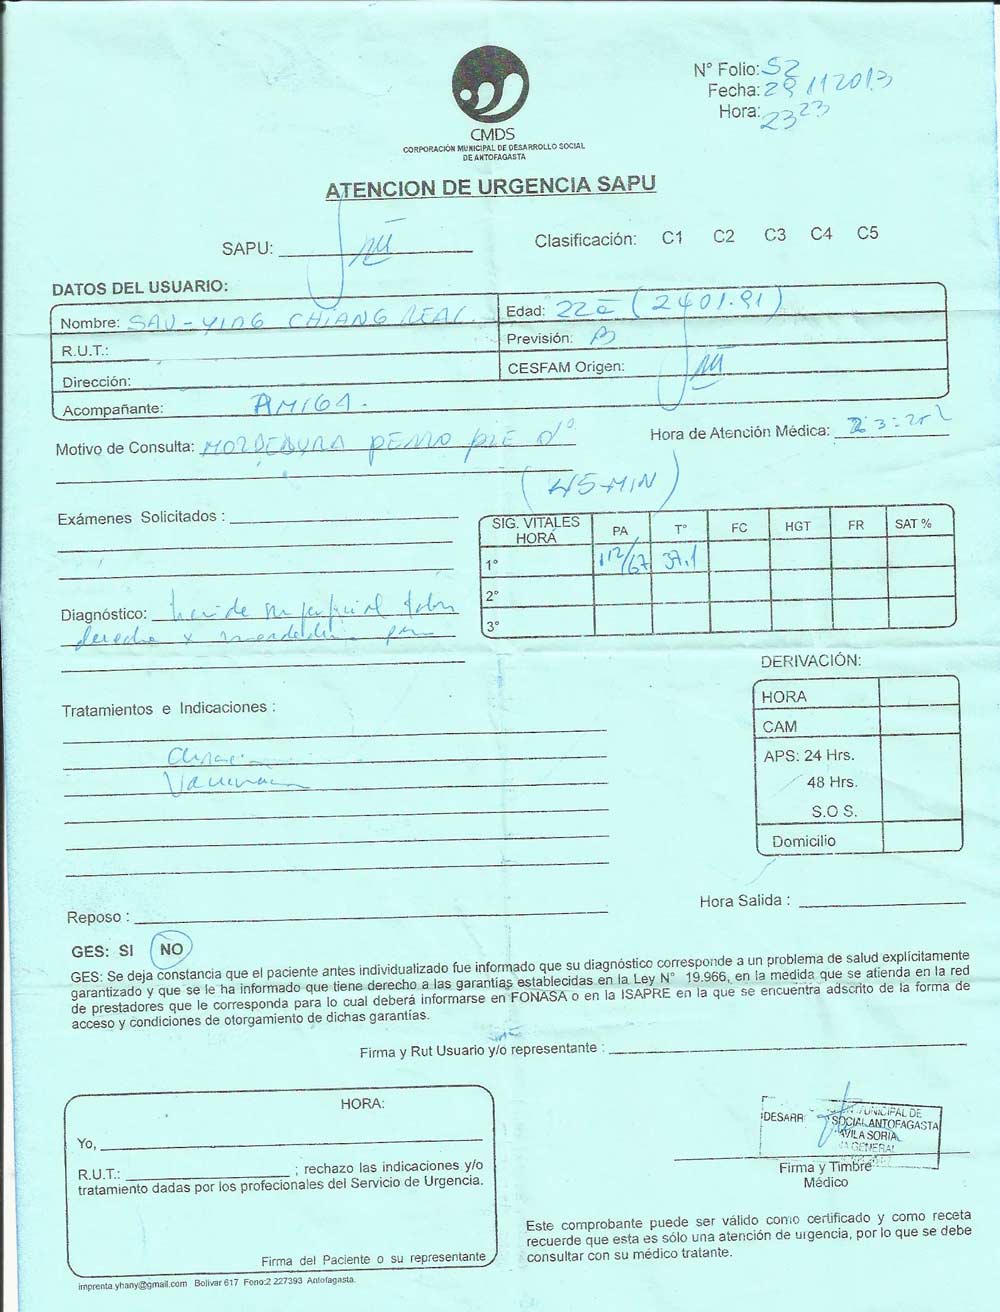 N° Folio: 52
Fecha: 29 11 2013
Hora: 23 23
CMDS
CORPORACIÓN MUNICIPAL DE DESARROLLO SOCIAL
DE ANTOFAGASTA
ATENCION DE URGENCIA SAPU
SAPU:
Clasificación: C1 C2 C3 C4 C5
DATOS DEL USUARIO:
Nombre: SAU-YING CHIANG REAL.
Edad: 22a (2401.91)
R.U.T.:
Previsión: B
Dirección:
CESFAM Origen:
Acompañante: AMIGA.
Motivo de Consulta: MORDEDURA PERRO PIE d°
Hora de Atención Médica:
(45 MIN)
Exámenes Solicitados :
SIG. VITALES HORA PA T° FC HGT FR SAT %
1° 112/67 37.1
2°
3°
Diagnóstico: herida superficial talon
derecho x mordedura perro
DERIVACIÓN:
HORA
CAM
APS: 24 Hrs.
48 Hrs.
S.O S.
Domicilio
Tratamientos e Indicaciones :
Curacion
Vacunacion
Hora Salida :
Reposo :
GES: SI NO
GES: Se deja constancia que el paciente antes individualizado fue informado que su diagnóstico corresponde a un problema de salud explícitamente
garantizado y que se le ha informado que tiene derecho a las garantías establecidas en la Ley N° 19.966, en la medida que se atienda en la red
de prestadores que le corresponda para lo cual deberá informarse en FONASA o en la ISAPRE en la que se encuentra adscrito de la forma de
acceso y condiciones de otorgamiento de dichas garantías.
Firma y Rut Usuario y/o representante :
HORA:
Yo,
R.U.T.: ; rechazo las indicaciones y/o
tratamiento dadas por los profecionales del Servicio de Urgencia.
Firma del Paciente o su representante
UNICIPAL DE
DESARR SOCIAL ANTOFAGASTA
AVILA SORIA
GENERAL
Firma y Timbre
Médico
Este comprobante puede ser válido como certificado y como receta
recuerde que esta es sólo una atención de urgencia, por lo que se debe
consultar con su médico tratante.
imprenta.yhany@gmail.com Bolivar 617 Fono:2 227393 Antofagasta.